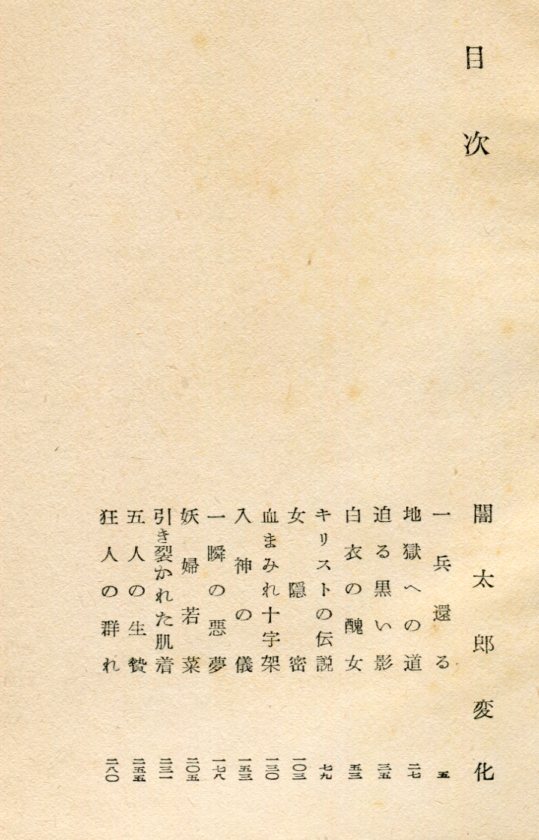 目次
闇太郎変化
一兵還る 五
地獄への道 二七
迫る黒い影 三五
白衣の醜女 五三
キリストの伝説 七九
女隠密 一〇三
血まみれ十字架 一三〇
入神の儀 一五三
一瞬の悪夢 一七八
妖婦若菜 二〇五
引き裂かれた肌着 二三一
五人の生贄 二五五
狂人の群れ 二八〇